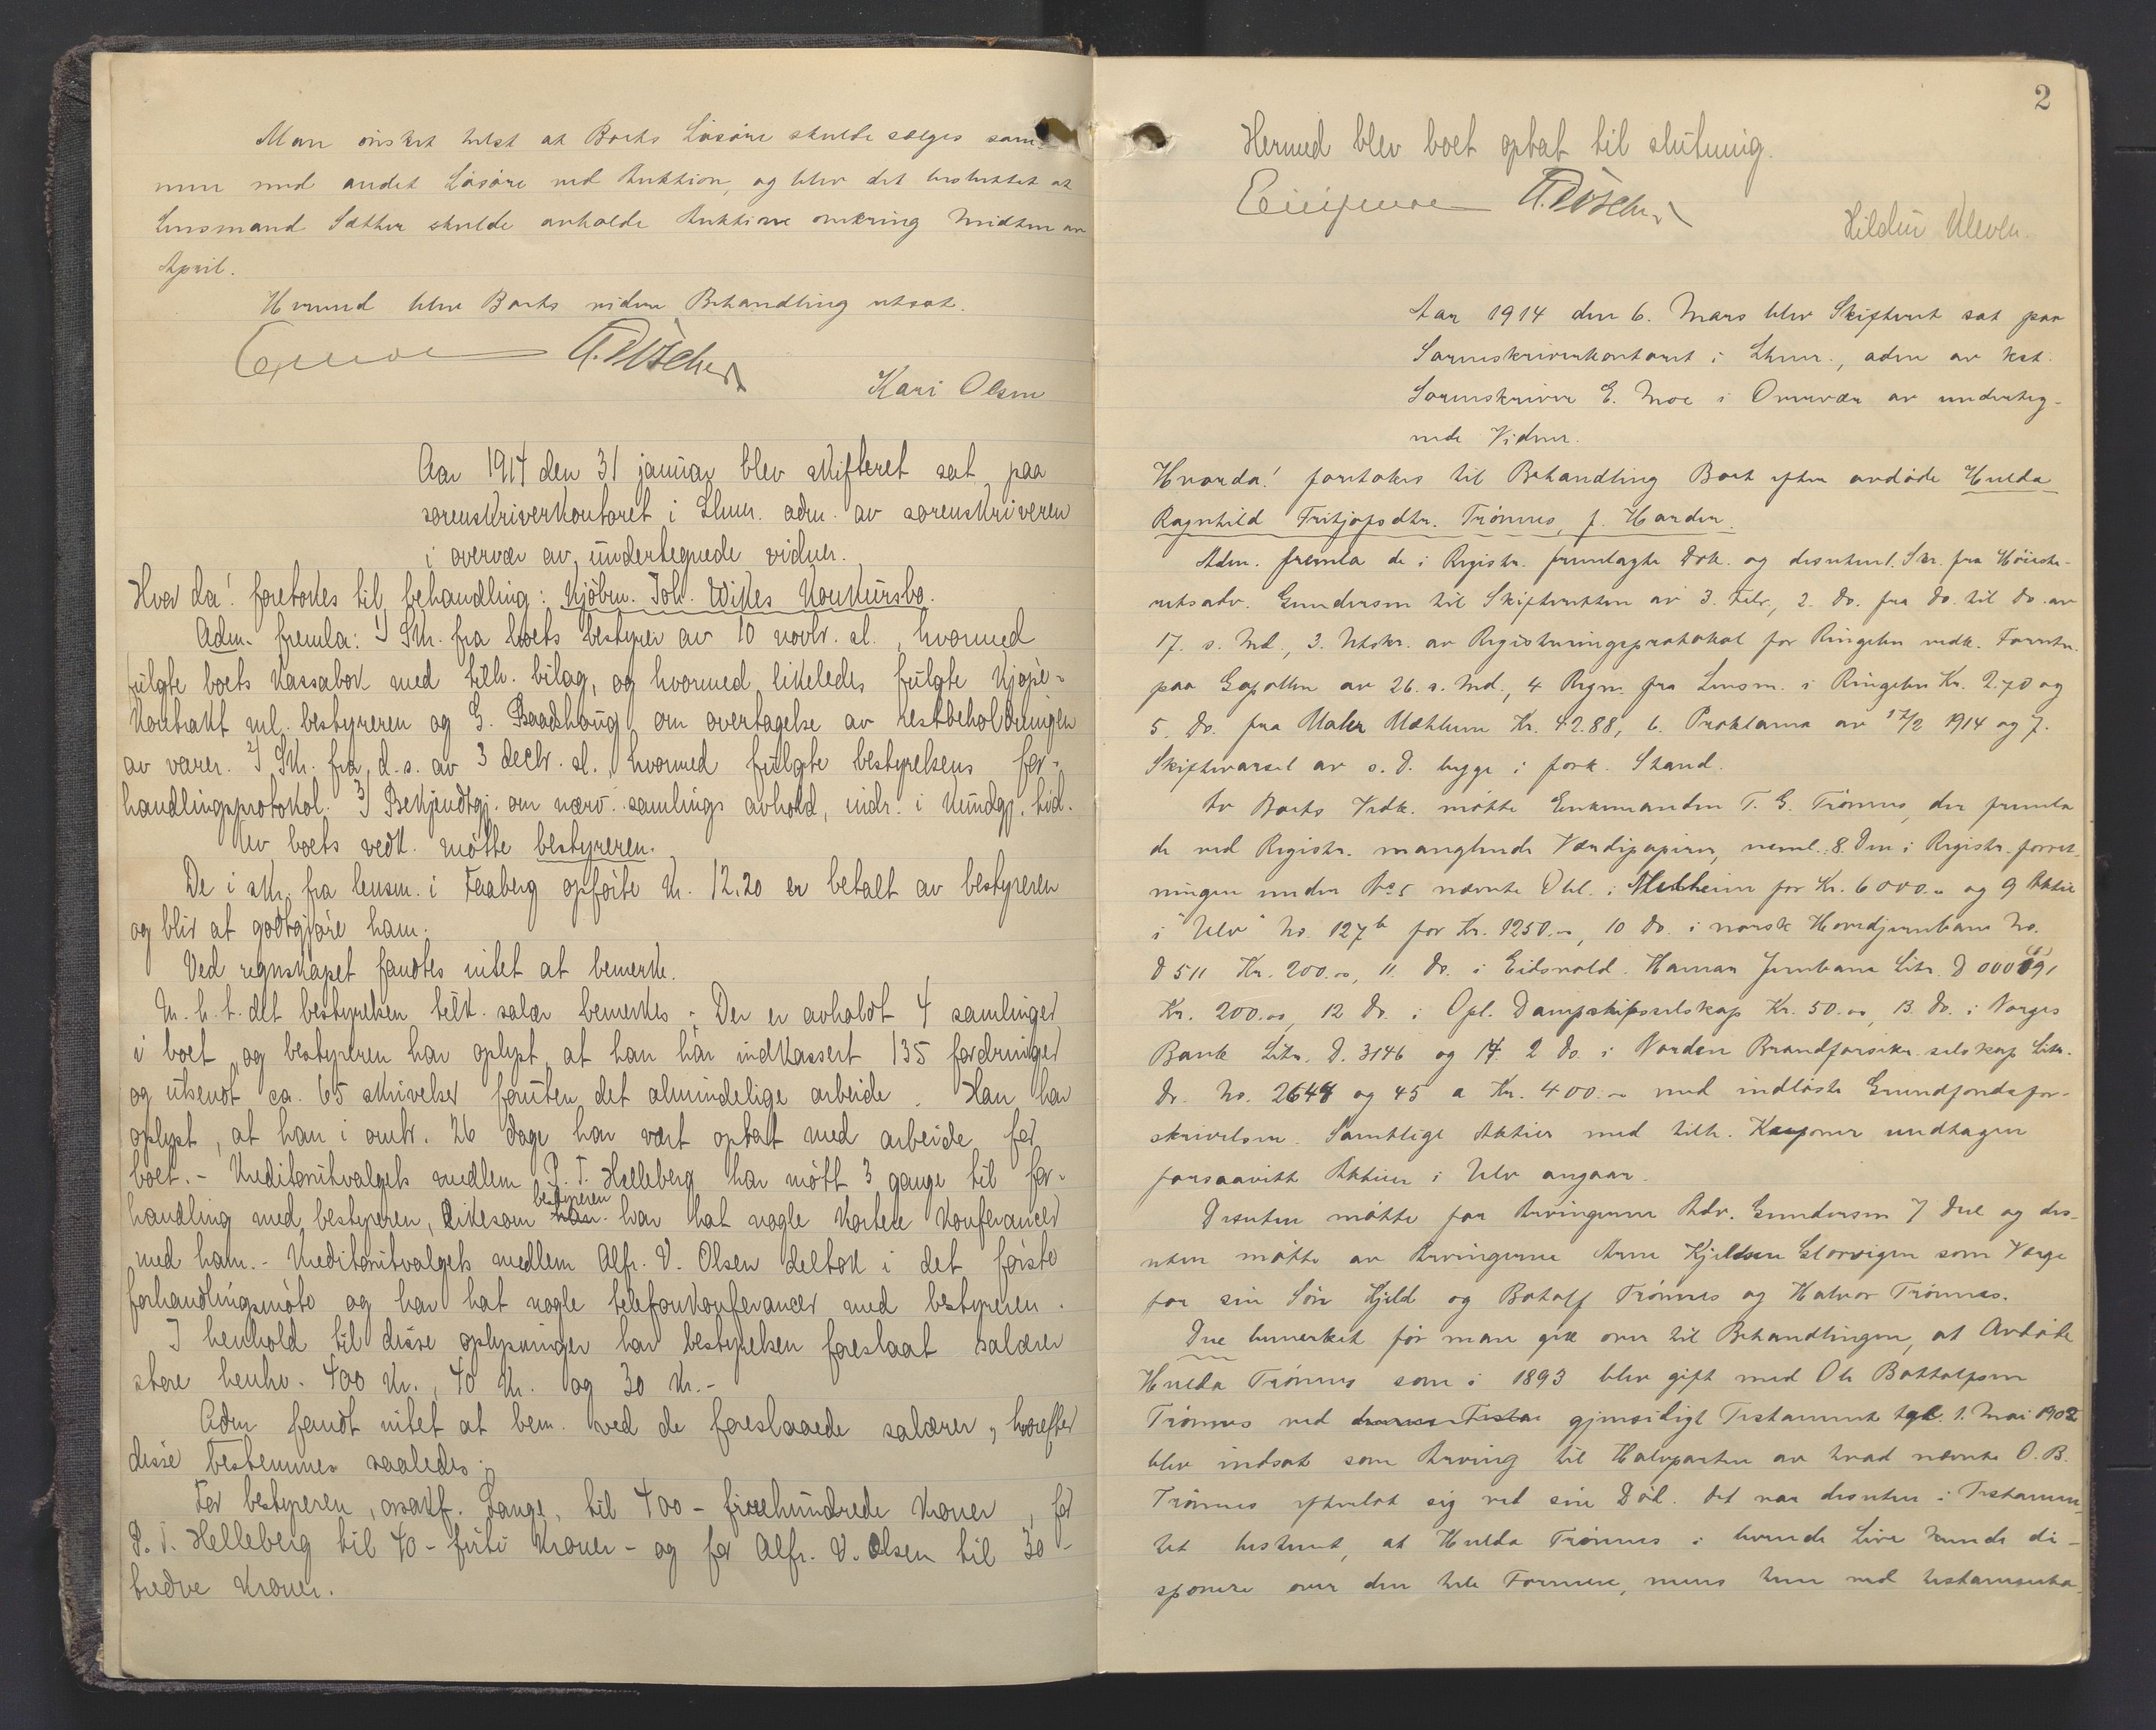 Man ønsket helst at Boets Løsøre skulde sælges sam-
men med andet Løsøre ved Auktion, og blev det besluttet at
Lensmand Sæther skulde avholde Auktion omkring Midten av
April.
Hermed blev Boets videre Behandling utsat.
Kari Olsen
Aar 1914 den 31 januar blev skifteret sat paa
sorenskriverkontoret i Lhmr. adm. av sorenskriveren
i overvær av undertegnede vidner.
Hvor da! foretokes til behandling: Kjøbm. Joh. Wikes Konkursbo.
Adm. fremla: 1) Skr. fra boets bestyrer av 10 novbr. sl., hvormed
fulgte boets kassabok med tilh. bilag, og hvormed likeledes fulgte kjøpe-
kontrakt ml. bestyreren og G. Baadshaug om overtagelse av restbeholdningen
av varer. 2) Skr. fra d.s. av 3 decbr. sl. hvormed fulgte bestyrelsens for-
handlingsprotokol. 3) Bekjendtgj. om nærv. samlings avhold, indr. i kundgj. tid.
Av boets vedk. møtte bestyreren.
De i skr. fra lensm. i Faaberg opførte kr. 12.20 er betalt av bestyreren
og blir at godtgjøre ham.
Ved regnskapet fandtes intet at bemerke.
M.h.t. det bestyrelsen tilk. salær bemerkes: Der er avholdt 4 samlinger
i boet, og bestyreren har oplyst at han har indkassert 135 fordringer
og utsendt ca. 65 skrivelser foruten det almindelige arbeide. Han har
oplyst, at han i omtr. 26 dage har vært optatt med arbeide for
boet. - Kreditorutvalgets medlem P. T. Helleberg har møtt 3 gange til for-
handling med bestyreren, likesom han bestyreren har hat nogle kortere konferancer
med ham. - Kreditorutvalgets medlem Alfr. V. Olsen deltok i det første
forhandlingsmøte og har hat nogle telefonkonferancer med bestyreren.
I henhold til disse oplysninger har bestyrelsen foreslaat salærer
store henhv. 400 kr., 40 kr. og 30 kr. -
Adm fandt intet at bem. ved de foreslaaede salærer, hvorefter
disse bestemmes saaledes:
For bestyreren, oraskf. Lange, til 400 - firehundrede kroner, for
P. T. Helleberg til 40 - firti kroner - og for Alfr. V. Olsen til 30 -
tredve kroner.
2
Hermed blev boet optat til slutning.
Hildur Kleven.
Aar 1914 den 6. Mars blev Skifteret sat paa
Sorenskriverkontoret i Lhmr., adm av kst.
Sorenskriver E. Moe i Overvær av underteg-
nede Vidner.
Hvorda! foretokes til Behandling Boet efter avdøde Hulda
Ragnhild Fritjofsdtr. Trønnes, f. Harden.
Adm. fremla de i Registr. fremlagte Dok. og desuten 1. Skr. fra Høieste-
retsadv. Gundersen til Skifteretten av 3. Febr., 2. Do. fra do. til do. av
17. s. Md., 3. Utskr. av Registreringsprotokol for Ringebu vedk. Forretn.
paa Gapollen av 26. s. Md., 4 Regn. fra Lensm. i Ringebu Kr. 2.70 og
5. Do. fra Maler Mæhlum Kr. 42.88, 6. Proklama av 17/2 1914 og 7.
Skiftevarsel av s. D. begge i fork. Stand.
Av Boets Vedk. møtte Enkemanden T. G. Trønnes, der fremla
de ved Registr. manglende Værdipapirer, neml.: 8. Den i Registr. forret-
ningen under No 5 nævnte Obl. i Melheim for Kr. 6000.- og 9 Aktie
i "Ulv" No. 127b for Kr. 1250.-, 10 Do. i norsk Hovedjernbane No.
D 511 Kr. 200.00, 11. Do. i Eidsvold. Hamar Jernbane Litr. D 00091
Kr. 200.00, 12 Do. i Opl. Dampskipsselskap Kr. 50.00, 13. Do. i Norges
Bank Litr. D. 3146 og 14 2 Do. i Norden Brandforsikr. selskap Litr.
Dr. No. 2644 og 45 a Kr. 400.- med indløste Grundfondsfor-
skrivelser. Samtlige Aktier med tilh. Kuponer undtagen
forsaavidt Aktien i Ulv angaar.
Desuten møtte for Arvingerne Adv. Gundersen 7 Due og des-
uten møtte av Arvingerne Arne Kjeldsen Storvigen som Værge
for sin Søn Kjeld og Botolf Trønnes og Halvor Trønnes.
Due bemerket før man gik over til Behandlingen, at Avdøde
Hulda Trønnes som i 1893 blev gift med Ole Bottolfsen
Trønnes ved gjensidigt Testamente tgl. 1. Mai 1902
blev indsat som Arving til Halvparten av hvad nævnte O. B.
Trønnes efterlot sig ved sin Død. Det var desuten i Testamen-
tet bestemt, at Hulda Trønnes i levende Live kunde di-
sponere over den hele Formue, mens hun ved testamenta-